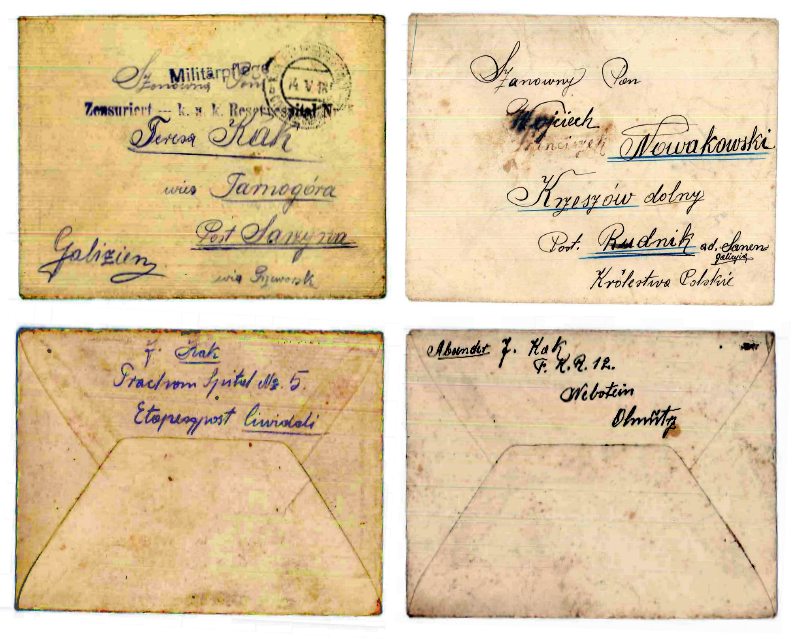 Militärpflege
Szanowna Pani
14 V 18
Zensuriert — k. u. k. Reservespital Nr
Teresa Kak
wieś Tarnogóra
Post Sarzyna
Galizien
via Przeworsk
Szanowny Pan
Wojciech
Franciszek
Nowakowski
Krzeszów dolny
Post. Rudnik ad. Sanem
galicyja
Królestwa Polskie
J. Kak
Trachom Spital Nr. 5.
Etapenpost Civideli
Absender J. Kak
F. K. R. 12.
Nebotein
Olmütz